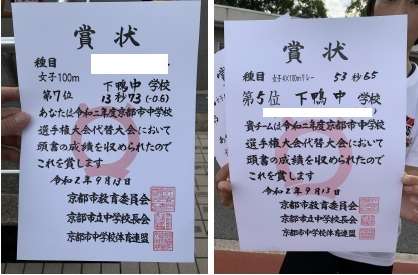 賞状
種目
女子100m
下鴨中 学校
第7位 13秒73(-0.6)
あなたは令和二年度京都市中学校
選手権大会代替大会において
頭書の成績を収められたので
これを賞します
令和2年9月13日
京都市教育委員会
京都市立中学校長会
京都市中学校体育連盟
賞状
種目 女子4×100mリレー 53秒65
第5位 下鴨中 学校
貴チームは令和二年度京都市中学校
選手権大会代替大会において
頭書の成績を収められたので
これを賞します
令和2年9月13日
京都市教育委員会
京都市立中学校長会
京都市中学校体育連盟